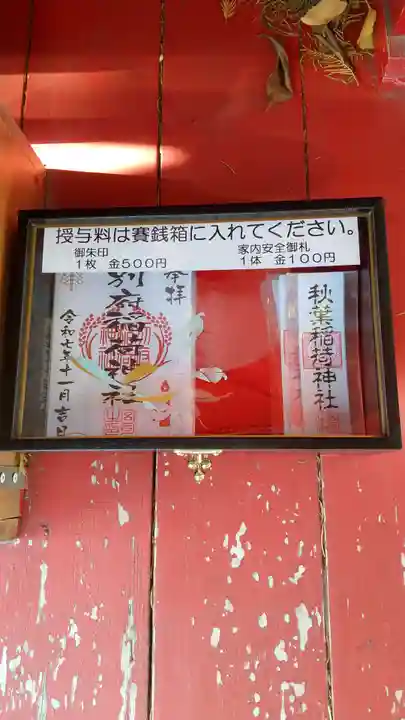 授与料は賽銭箱に入れてください。
御朱印
1枚 金500円
家内安全御札
1体 金100円
奉拝
令和七年十一月吉日
秋葉稲荷神社